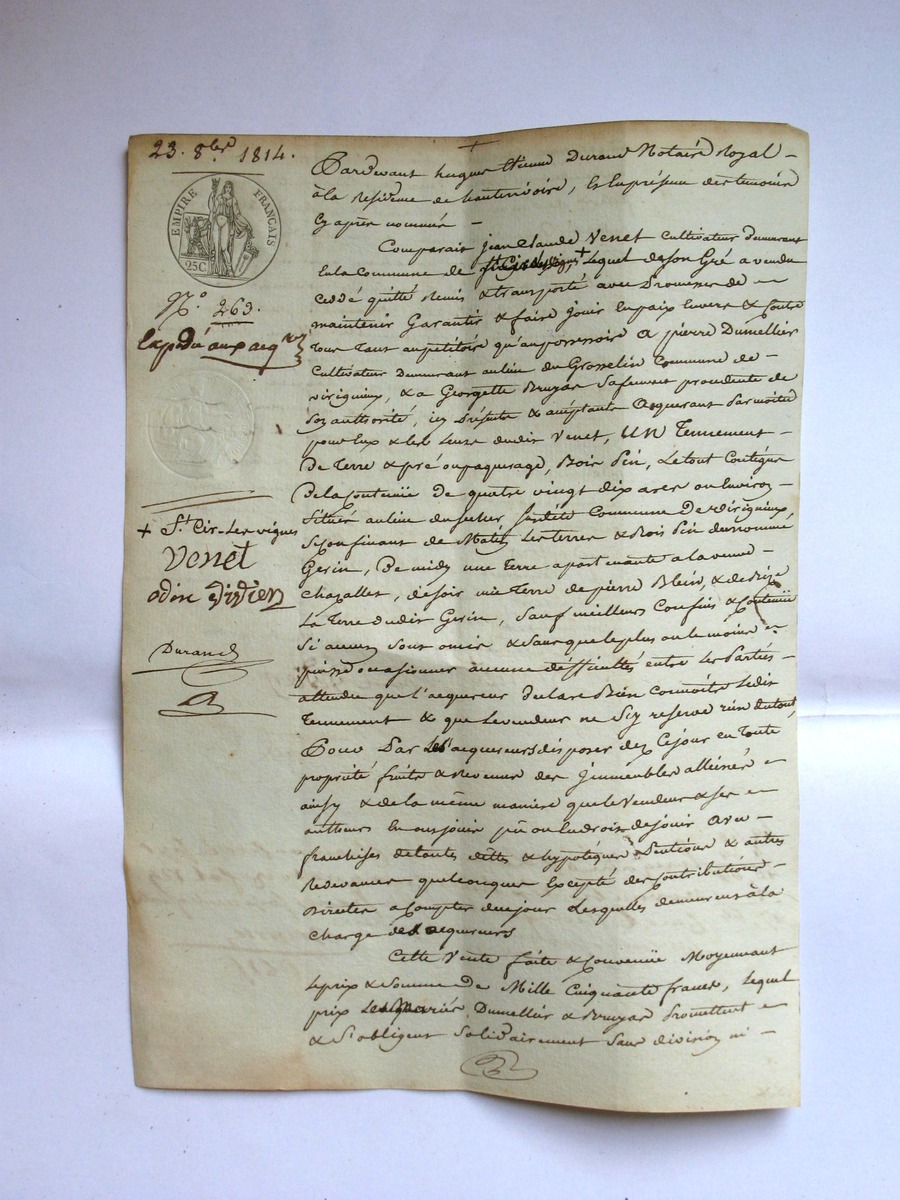 23. 8bre 1814.
EMPIRE FRANÇAIS
25C
N° 263.
Expédié aux acqrs
+ St Cir-Les vignes
Venet
Durand
Pardevant hugue Etienne Durand Notaire Royal
à la Residence de hauterivoire, & En présence des temoins
Cy après nommés
Comparait jean Claude Venet Cultivateur demeurant
En la Commune de + Lequel de son Gré a vendu
Ceddé quitté Remis & transporté avec Promesse de
maintenir Garantir & faire jouir En paix Envers & Contre
Tous Tant au petitoire qu'au possessoire A pierre Dumellier
Cultivateur Demeurant au lieu du Grosselin Commune de
virigneux, & a Georgette Bruyas Sa femme procedente de
Son authorité, icy Présents & acceptants Acquerant Par moitié
pour Eux & les leurs dudit Venet, UN Tennement
De Terre & pré ou paquerage, Bois Pin, Le tout Contigus
De la Contenue de quatre vingt dix ares ou Environ
Situés au lieu du Commune De virigneux,
Se Confinant de Matin Les terres & Bois Pin du nommé
Gerin, De midy une Terre apartenante a la veuve
Chazallet, de soir une Terre de pierre Blein, & de Bize
La Terre dudit Gerin, Sauf meilleurs Confins & Contenue
Si aucun Sont omis & Sans que le plus ou le moins
puisse occasionner aucune difficultés entre Les Parties
attendu que l'acquereur declare Bien Connoitre Ledit
Tennement & que Le vendeur ne S'y reserve rien du tout,
Pour Par Les acquereurs disposer dez Ce jour En Toute
propriété fruits & Revenus des jmmeubles alliénés
ainsy & de la même manière que le Vendeur & ses
autheurs En ont jouir pû ou Eu droit de jouir Avec
franchises de toutes dettes & hypotéques Pentions & autres
Redevances quelconques Excepté des Contributions
Directes a Compter de ce jour Lesquelles demeurent à la
Charge des acquereurs
Cette Vente faite & Convenüe Moyennant
Le prix & Somme De Mille Cinquante francs, Lequel
prix Les Mariés Dumellier & Bruyas Promettent
& S'obligent Solidairement Sans division ni